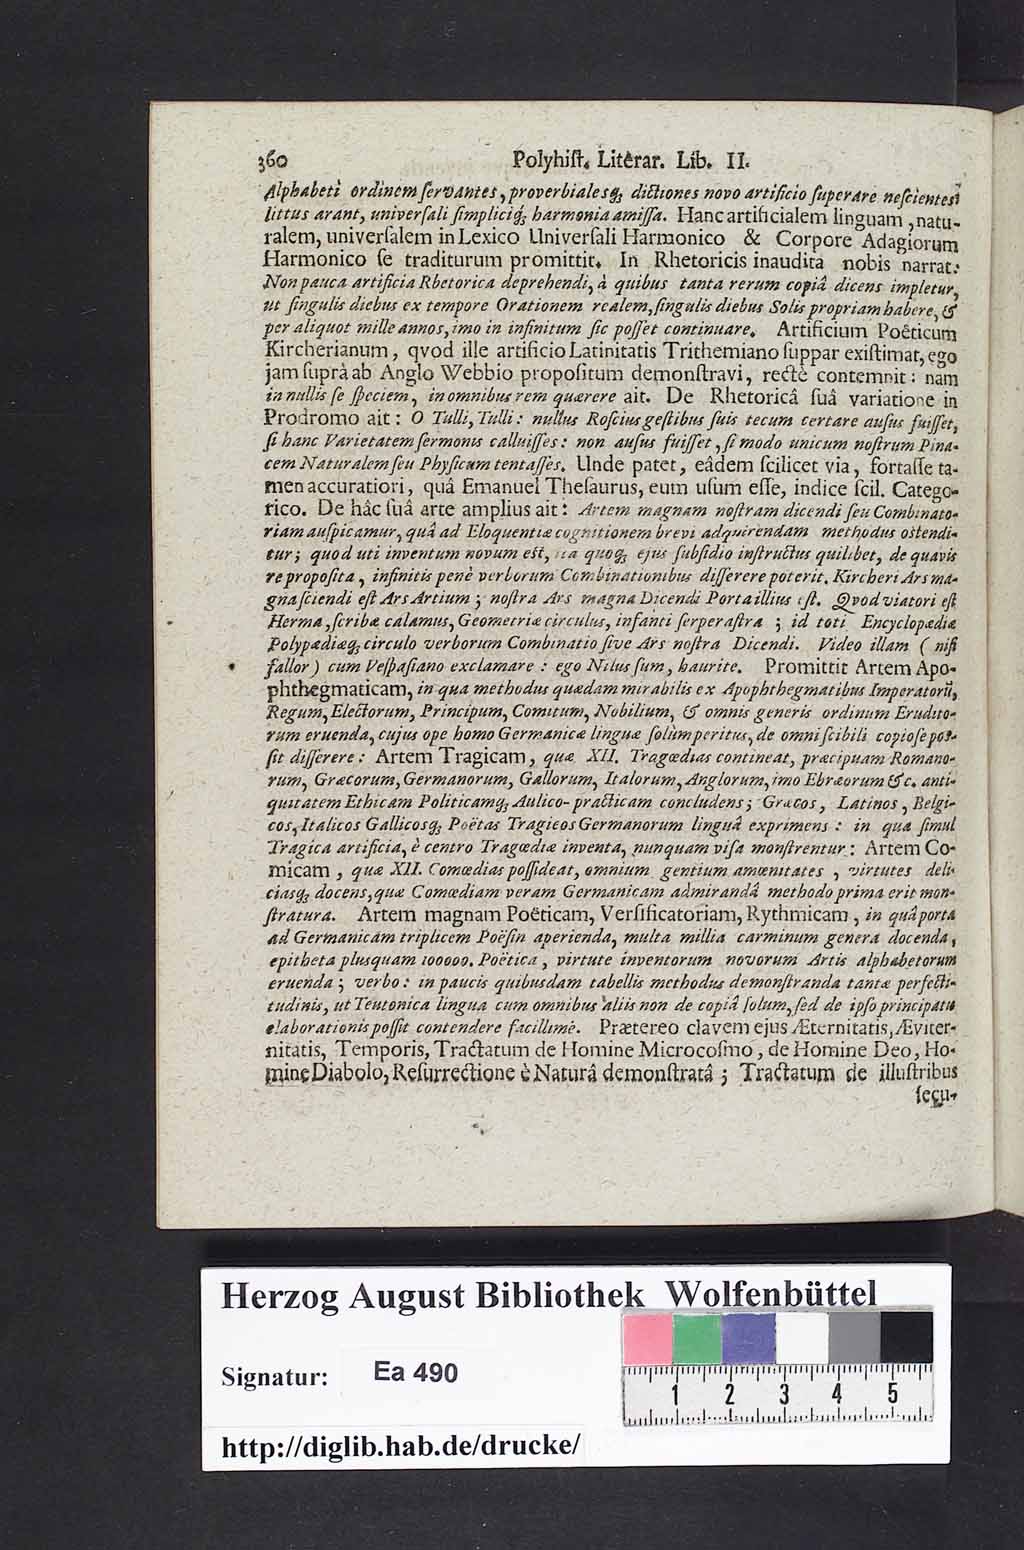 360 Polyhiſt. Literar. Lib. II.
Alphabeti ordinem ſervantes, proverbialesq; dictiones novo artificio ſuperare neſcientes
littus arant, univerſali ſimpliciq́; harmonia amiſſa. Hanc artificialem linguam, natu-
ralem, univerſalem in Lexico Univerſali Harmonico & Corpore Adagiorum
Harmonico ſe traditurum promittit. In Rhetoricis inaudita nobis narrat:
Non pauca artificia Rhetorica deprehendi, à quibus tanta rerum copiâ dicens impletur,
ut ſingulis diebus ex tempore Orationem realem, ſingulis diebus Solis propriam habere, &
per aliquot mille annos, imo in infinitum ſic poſſet continuare. Artificium Poêticum
Kircherianum, qvod ille artificio Latinitatis Trithemiano ſuppar exiſtimat, ego
jam ſuprà ab Anglo Webbio propoſitum demonſtravi, rectè contemnit: nam
in nullis ſe ſpeciem, in omnibus rem quærere ait. De Rhetoricâ ſuâ variatione in
Prodromo ait: O Tulli, Tulli: nullus Roſcius geſtibus ſuis tecum certare auſus fuiſſet,
ſi hanc Varietatem ſermonis calluiſſes: non auſus fuiſſet, ſi modo unicum noſtrum Pina-
cem Naturalem ſeu Phyſicum tentaſſes. Unde patet, eâdem ſcilicet via, fortaſſe ta-
men accuratiori, quâ Emanuel Theſaurus, eum uſum eſſe, indice ſcil. Catego-
rico. De hâc ſuâ arte amplius ait: Artem magnam noſtram dicendi ſeu Combinato-
riam auſpicamur, quâ ad Eloquentiæ cognitionem brevi adquirendam methodus oſtendi-
tur; quod uti inventum novum eſt, ita quoq; ejus ſubſidio inſtructus quilibet, de quavis
re propoſita, infinitis penè verborum Combinationibus differere poterit. Kircheri Ars ma-
gna ſciendi eſt Ars Artium; noſtra Ars magna Dicendi Porta illius eſt. Qvod viatori eſt
Herma, ſcribæ calamus, Geometriæ circulus, infanti ſerperaſtra; id toti Encyclopædiæ
Polypædiæq; circulo verborum Combinatio ſive Ars noſtra Dicendi. Video illam (niſi
fallor) cum Veſpaſiano exclamare: ego Nilus ſum, haurite. Promittit Artem Apo-
phthegmaticam, in qua methodus quædam mirabilis ex Apophthegmatibus Imperatorũ,
Regum, Electorum, Principum, Comitum, Nobilium, & omnis generis ordinum Erudito-
rum eruenda, cujus ope homo Germanicæ linguæ ſolùm peritus, de omni ſcibili copioſe poſ-
ſit differere: Artem Tragicam, quæ XII. Tragœdias contineat, præcipuam Romano-
rum, Græcorum, Germanorum, Gallorum, Italorum, Anglorum, imo Ebræorum &c. anti-
quitatem Ethicam Politicamq; Aulico-practicam concludens; Græcos, Latinos, Belgi-
cos, Italicos Gallicosq; Poëtas Tragicos Germanorum linguâ exprimens: in qua ſimul
Tragica artificia, è centro Tragœdiæ inventa, nunquam viſa monſtrentur: Artem Co-
micam, quæ XII. Comœdias poſſideat, omnium gentium amœnitates, virtutes deli-
ciasq; docens, quæ Comœdiam veram Germanicam admirandâ methodo prima erit mon-
ſtratura. Artem magnam Poëticam, Verſificatoriam, Rythmicam, in quâ porta
ad Germanicam triplicem Poëſin aperienda, multa millia carminum genera docenda,
epitheta plusquam 100000. Poëtica, virtute inventorum novorum Artis alphabetorum
eruenda; verbo: in paucis quibusdam tabellis methodus demonſtranda tantæ perfecti-
tudinis, ut Teutonica lingua cum omnibus aliis non de copiâ ſolum, ſed de ipſo principatu
elaborationis poſſit contendere facillimè. Prætereo clavem ejus Æternitatis, Æviter-
nitatis, Temporis, Tractatum de Homine Microcoſmo, de Homine Deo, Ho-
mine Diabolo, Reſurrectione è Naturâ demonſtratâ; Tractatum de illuſtribus
ſecu-
Herzog August Bibliothek Wolfenbüttel
Signatur: Ea 490
1 2 3 4 5
http://diglib.hab.de/drucke/